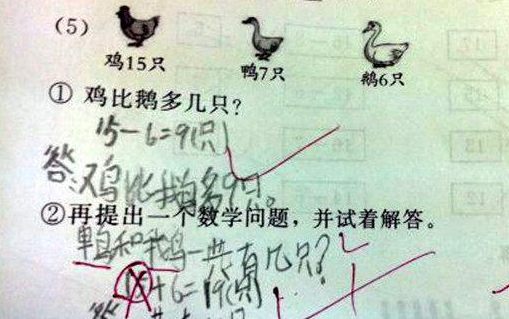 (5)
鸡15只 鸭7只 鹅6只
① 鸡比鹅多几只?
15-6=9(只)
答:鸡比鹅多9只。
②再提出一个数学问题,并试着解答。
鸭和鹅一共有几只?
+6=19(只)
答